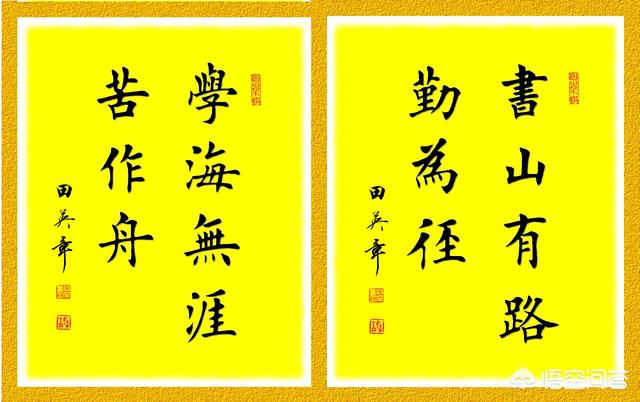 書山有路
勤為徑
田英章
學海無涯
苦作舟
田英章
悟空问答